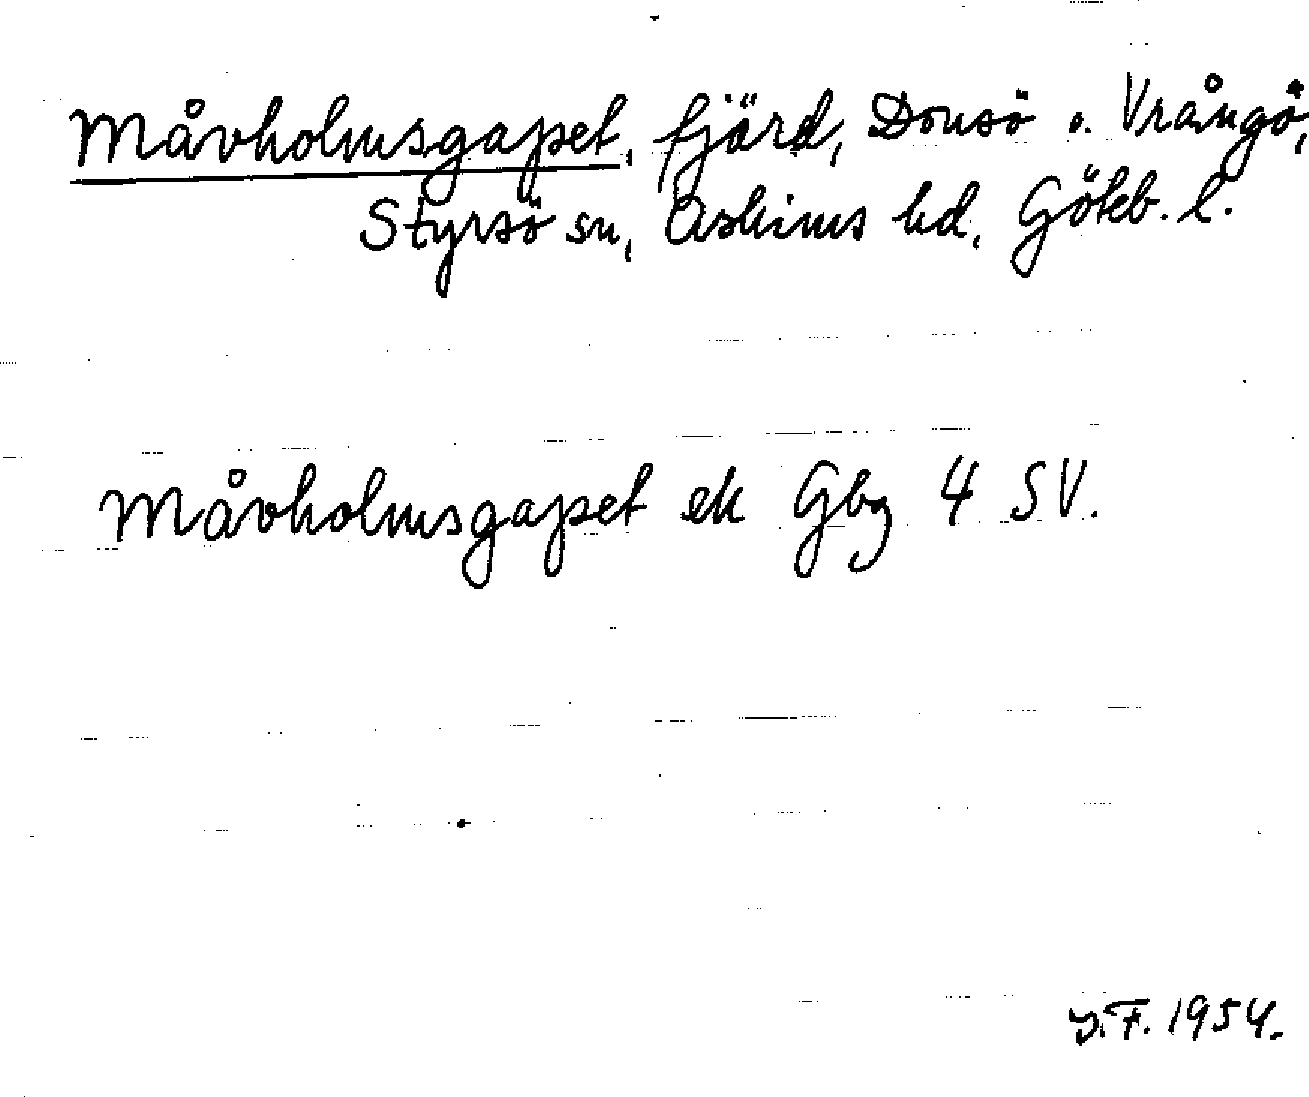 Måvholmsgapet, fjärd, Donsö o. Vrångö,
Styrsö sn, Askims hd, Göteb. l.
Måvholmsgapet ek Gbg 4 SV.
J.F. 1954.